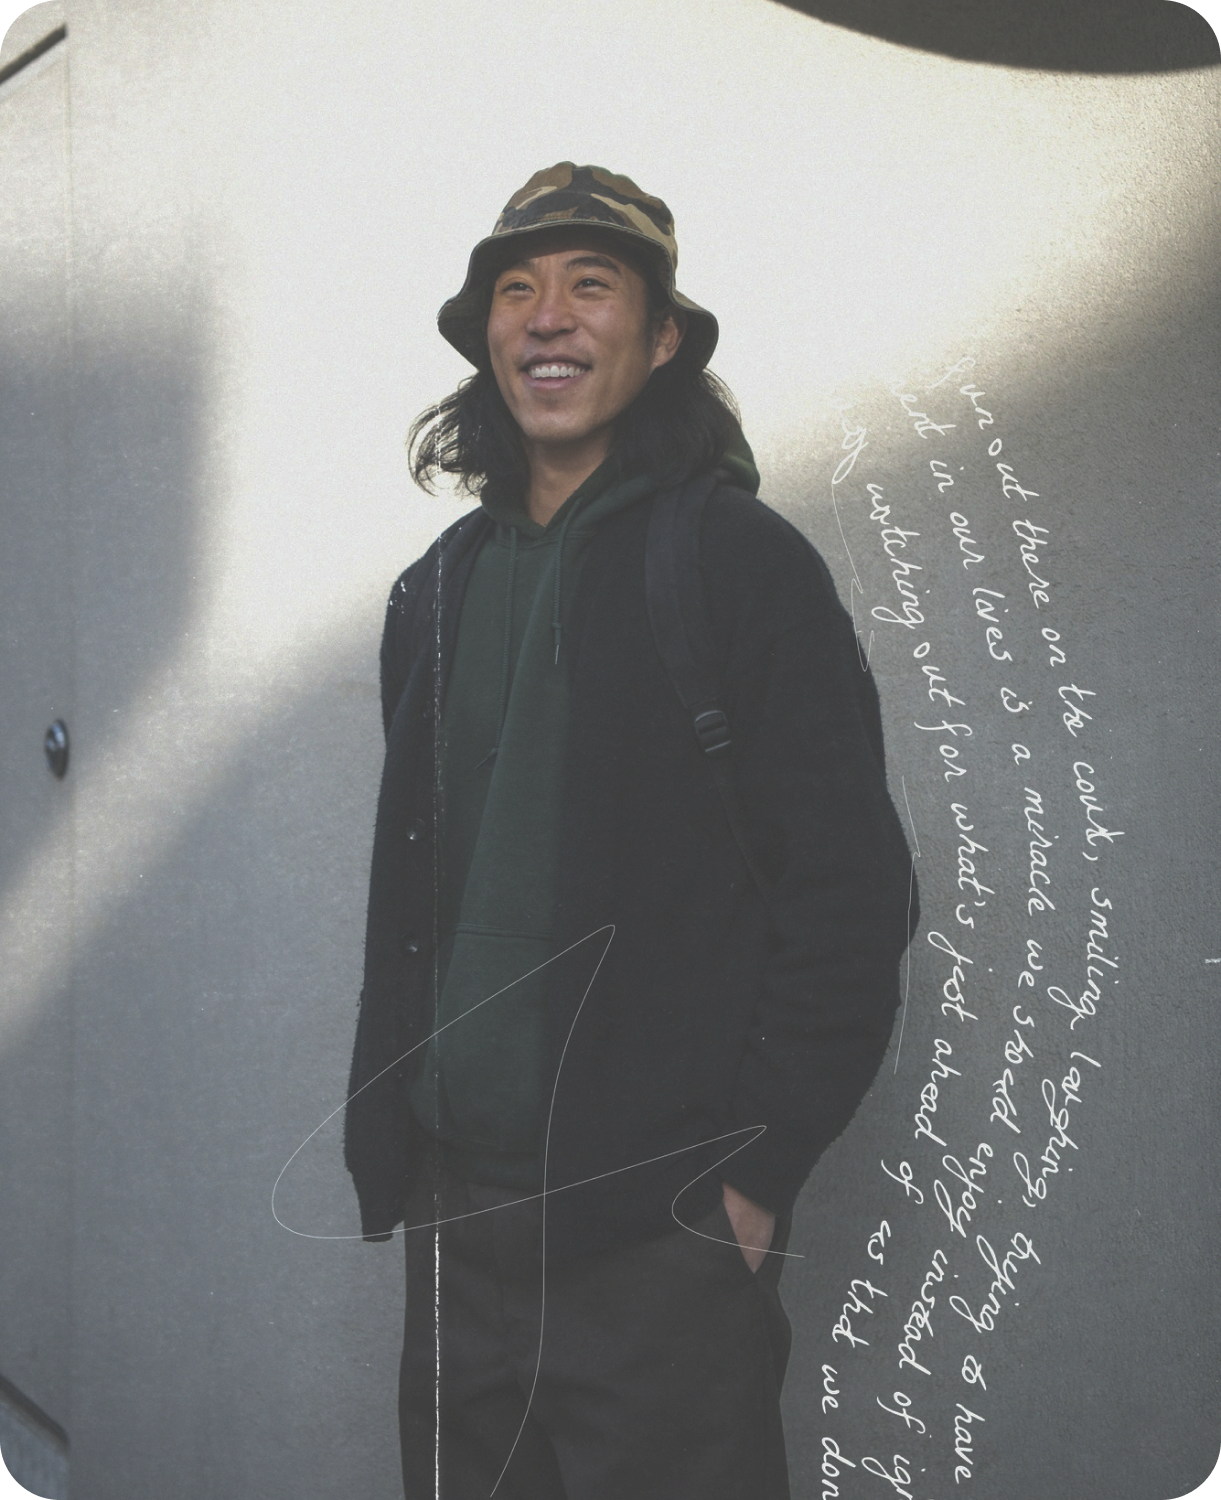 fun out there on the court, smiling, laughing, trying to have
ent in our lives is a miracle we should enjoy instead of ign
watching out for what's just ahead of us that we don